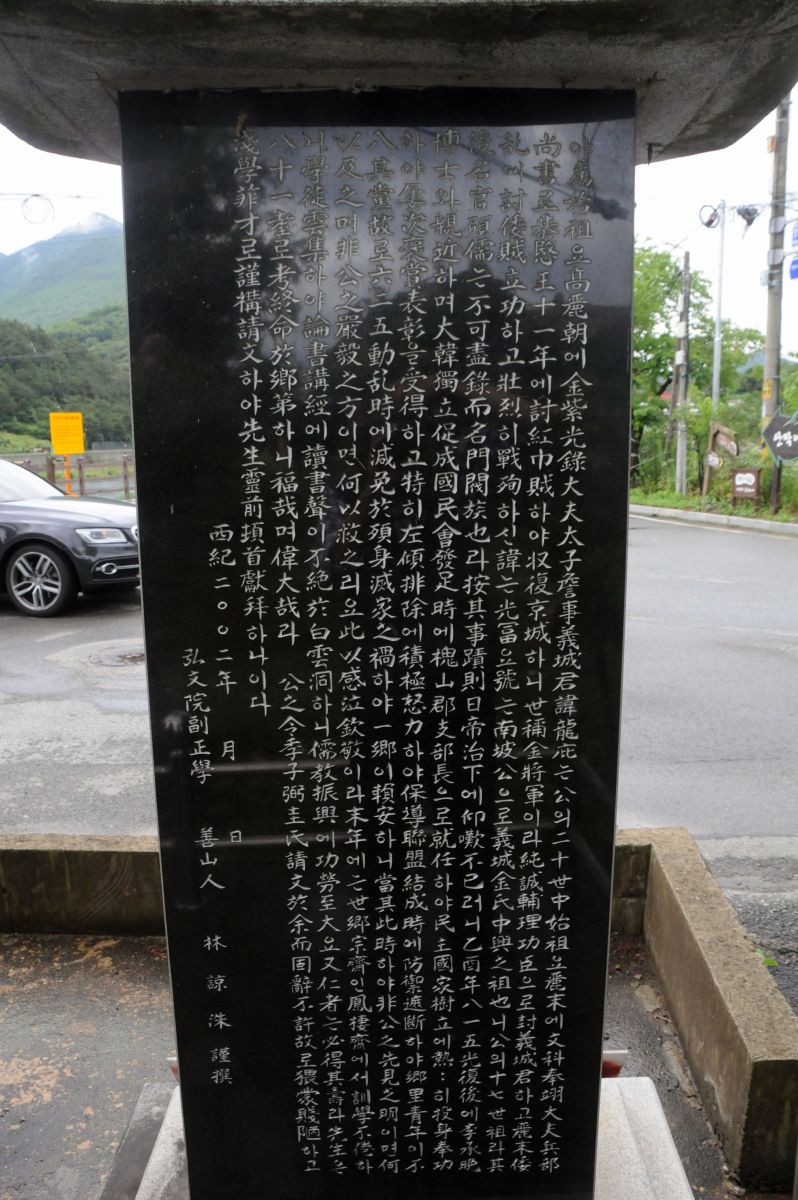 야為始祖요高麗朝에金紫光錄大夫太子詹事義城君諱龍庇는公의二十世中始祖요麗末에文科奉翊大夫兵部
尚書로恭愍王十一年에討紅巾賊하야収復京城하니世稱金將軍이라純誠輔理功臣으로封義城君하고麗末倭
乱에討倭賊立功하고壯烈히戰殉하신諱는光富요號는南坡公으로義城金氏中興之祖也니公의十七世祖라其
後名官碩儒는不可盡錄而名門閥族也라按其事蹟則日帝治下에仰嘆不已러니乙酉年八一五光復後에李承晩
博士와親近하며大韓獨立促成國民會發足時에槐山郡支部長으로就任하야民主國家樹立에熱:히投身奉功
하야屢次褒賞表彰을受得하고特히左傾排除에積極努力하야保導聯盟結成時에防禦遮斷하야鄉里青年이不
入其黨故로六二五動乱時에滅免於殞身滅家之禍하야一鄉이賴安하니當其此時하야非公之先見之明이면何
以及之며非公之嚴毅之方이면何以救之리요此以感泣欽敬이라末年에는世鄉宗齋인鳳棲齋에서訓學不倦하
니學徒雲集하야論書講經에讀書聲이不絶於白雲洞하니儒教振興에功勞至大요又仁者는必得其壽라先生은
八十一耋로考終命於鄉第하니福哉며偉大哉라 公之令季子弼主氏請文於余而固辭不許故로猥蒙賤陋하고
淺學菲才로謹構請文하야先生靈前頓首獻拜하나이다
西紀二00二年 月 日
弘文院副正學 善山人 林諒洙謹撰